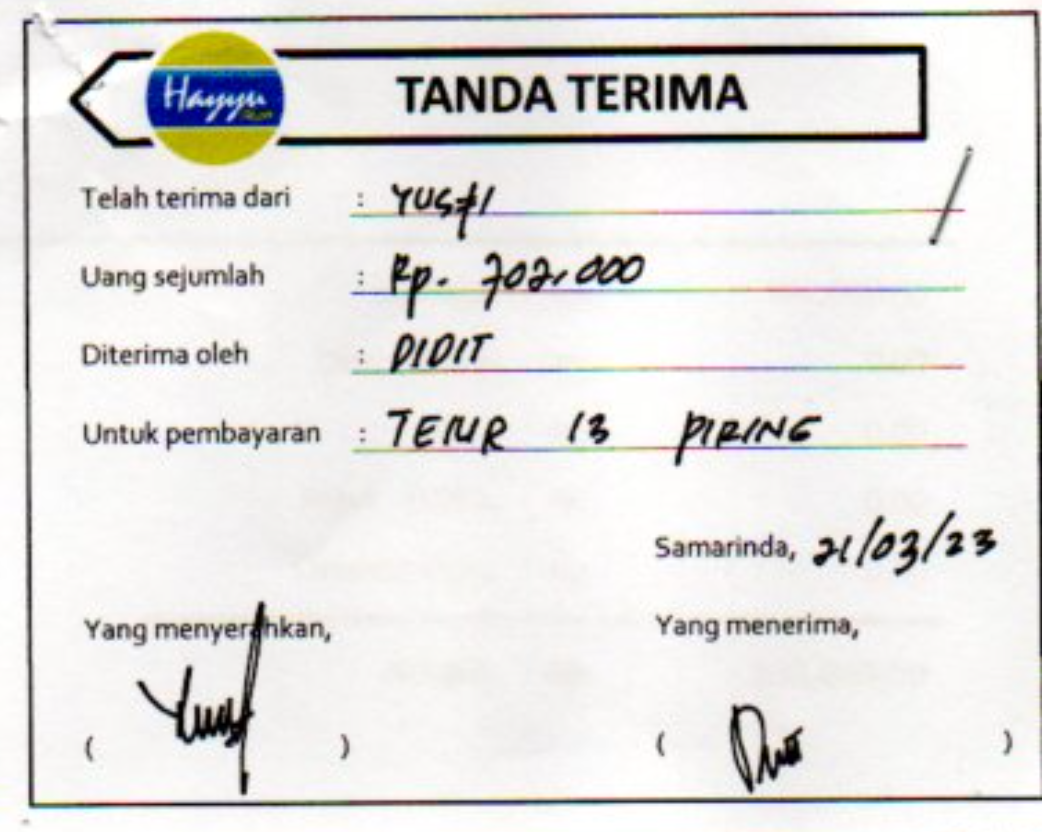 Hayyu
TANDA TERIMA
Telah terima dari : YUSFI
Uang sejumlah : Rp. 702.000
Diterima oleh : DIDIT
Untuk pembayaran : TELUR 13 PIRING
Samarinda, 21/03/23
Yang menyerahkan,
Yang menerima,
( )
( )